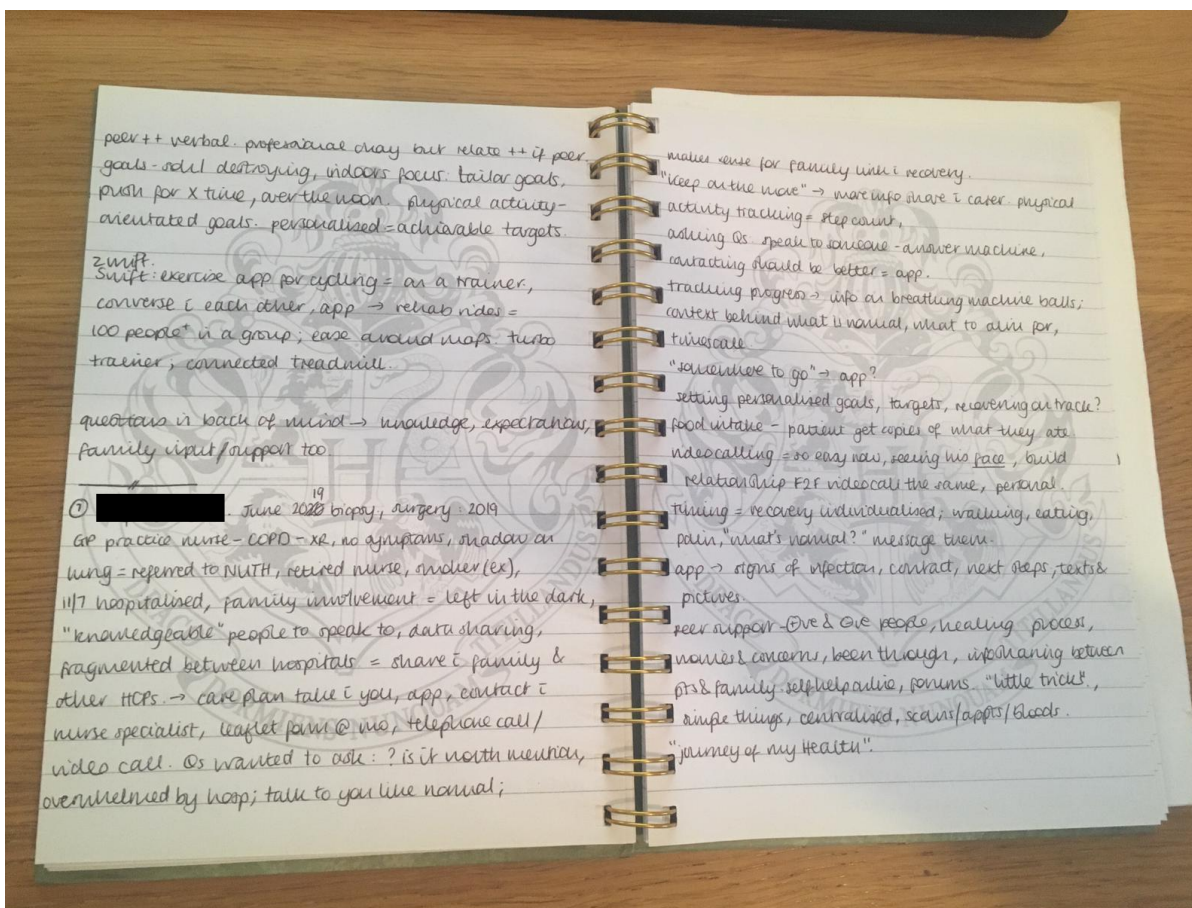 peer ++ verbal. professional okay but relate ++ if peer.
goals - soul destroying, indoors focus. tailor goals,
push for X time, over the moon. physical activity-
orientated goals. personalised = achievable targets.
zwift.
Swift: exercise app for cycling = on a trainer,
converse c̄ each other, app → rehab rides =
100 people+ in a group; ease around maps. turbo
trainer; connected treadmill.
questions in back of mind → knowledge, expectations,
family input/support too.
⑦ June 2019 biopsy, surgery: 2019
GP practice nurse - COPD - XR, no symptoms, shadow on
lung = referred to NUTH, retired nurse, smoker (ex),
11/7 hospitalised, family involvement = left in the dark,
"knowledgeable" people to speak to, data sharing,
fragmented between hospitals = share c̄ family &
other HCPs. → care plan take c̄ you, app, contact c̄
nurse specialist, leaflet form @ mo, telephone call/
video call. Qs wanted to ask: ? is it worth mention,
overwhelmed by hosp; talk to you like normal;
makes sense for family link c̄ recovery.
"Keep on the move" → more info share c̄ carer. physical
activity tracking = step count,
asking Qs. speak to someone - answer machine,
contacting should be better = app.
tracking progress → info on breathing machine balls;
context behind what is normal, what to aim for,
timescale.
"somewhere to go" → app?
setting personalised goals, targets, recovering on track?
food intake - patient get copies of what they ate
videocalling = so easy now, seeing his face, build
relationship F2F videocall the same, personal.
timing = recovery individualised; walking, eating,
pain, "what's normal?" message them.
app → signs of infection, contact, next steps, texts &
pictures.
peer support - ⊕ve & ⊖ve people, healing process,
worries & concerns, been through, infosharing between
pts & family. selfhelp online, forums. "little tricks",
simple things, centralised, scans/appts/bloods.
"journey of my Health".